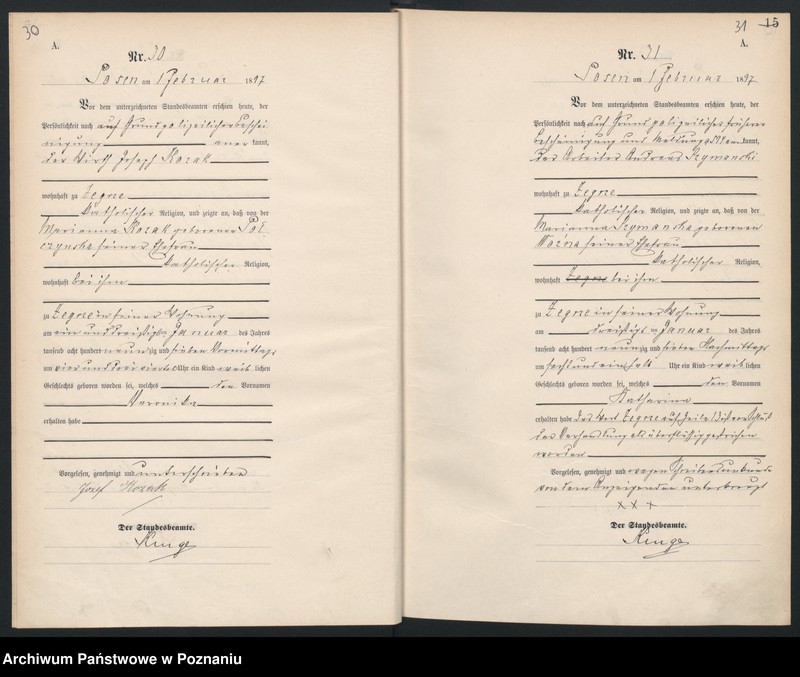 30
A.
Nr. 30
Posen am 1 Februar 1897
Vor dem unterzeichneten Standesbeamten erschien heute, der
Persönlichkeit nach auf Grund polizeilicher Beschei-
nigung anerkannt,
der Wirth Joseph Kozak
wohnhaft zu Zegrze
katholischer Religion, und zeigte an, daß von der
Marianna Kozak geborenen
seiner Ehefrau
katholischer Religion,
wohnhaft bei ihm
zu Zegrze in seiner Wohnung
am ein und dreißigsten Januar des Jahres
tausend acht hundert neunzig und sieben Vormittags
um vier und drei viertel Uhr ein Kind weiblichen
Geschlechts geboren worden sei, welches den Vornamen
Veronika
erhalten habe
Vorgelesen, genehmigt und unterschrieben
Józef Kozak
Der Standesbeamte.
Runge
31 15
A.
Nr. 31
Posen am 1 Februar 1897
Vor dem unterzeichneten Standesbeamten erschien heute, der
Persönlichkeit nach auf Grund polizeilicher früherer
Bescheinigung und Meldung anerkannt,
der Arbeiter Andreas Szymanski
wohnhaft zu Zegrze
katholischer Religion, und zeigte an, daß von der
Marianna Szymanska geborenen
Wozna seiner Ehefrau
katholischer Religion,
wohnhaft Zegrze bei ihm
zu Zegrze in seiner Wohnung
am dreißigsten Januar des Jahres
tausend acht hundert neunzig und sieben Nachmittags
um sechs und ein halb Uhr ein Kind weiblichen
Geschlechts geboren worden sei, welches den Vornamen
Katharina
erhalten habe das Wort Zegrze auf Zeile
der Verhandlung als überflüssig gestrichen
worden
Vorgelesen, genehmigt und wegen Schreibensunkunde
von dem Anzeigenden unterkreuzt
x x +
Der Standesbeamte.
Runge
Archiwum Państwowe w Poznaniu